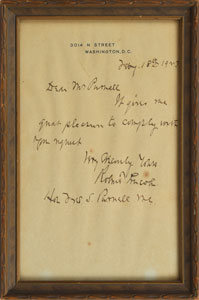 3014 N STREET
WASHINGTON, D.C.
18th 19
Dear Mr Purnell
It gives me
great pleasure to comply with
your request
Very Sincerely Yours
Robert Lincoln
Purnell